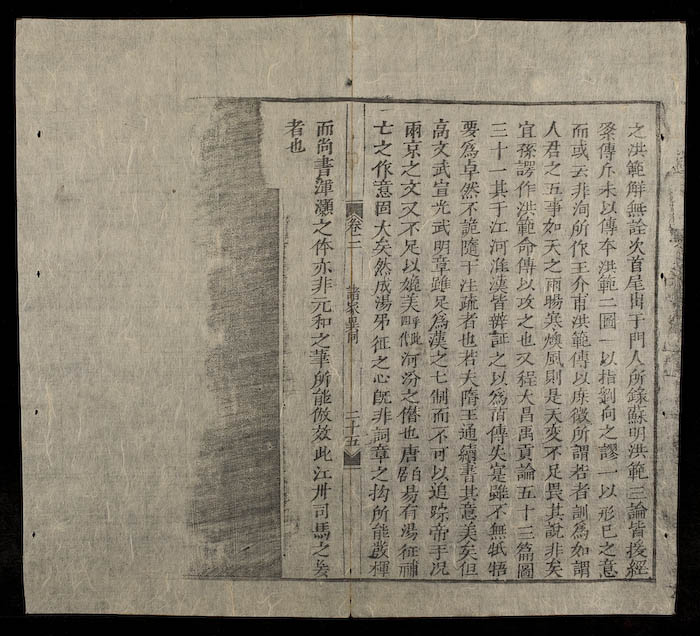 之洪範解無詮次首尾出于門人所錄蘇明洪範三論皆援經
繫傳斥末以傳本洪範二圖一以指劉向之謬一以形已之意
而或云非洵所作王介甫洪範傳以庶徵所謂若者訓為如謂
人君之五事如天之雨暘寒燠風則是天變不足畏其說非矣
宜孫諤作洪範命傳以攻之也又程大昌禹貢論五十三篇圖
三十一其于江河淮漢皆辨証之以為首傳失寔雖不無牴牾
要為卓然不詭隨于注疏者也若夫隋王通續書其意美矣但
高文武宣光武明章雖足為漢之七制而不可以追踪帝王况
兩京之文又不足以媲美四代此河汾之僭也唐白居易有湯征補
亡之作意固大矣然成湯弔征之心既非詞章之抅所能發揮
而尚書渾灝之体亦非元和之筆所能倣效此江州司馬之妄
者也
卷二
諸家異同
二十五